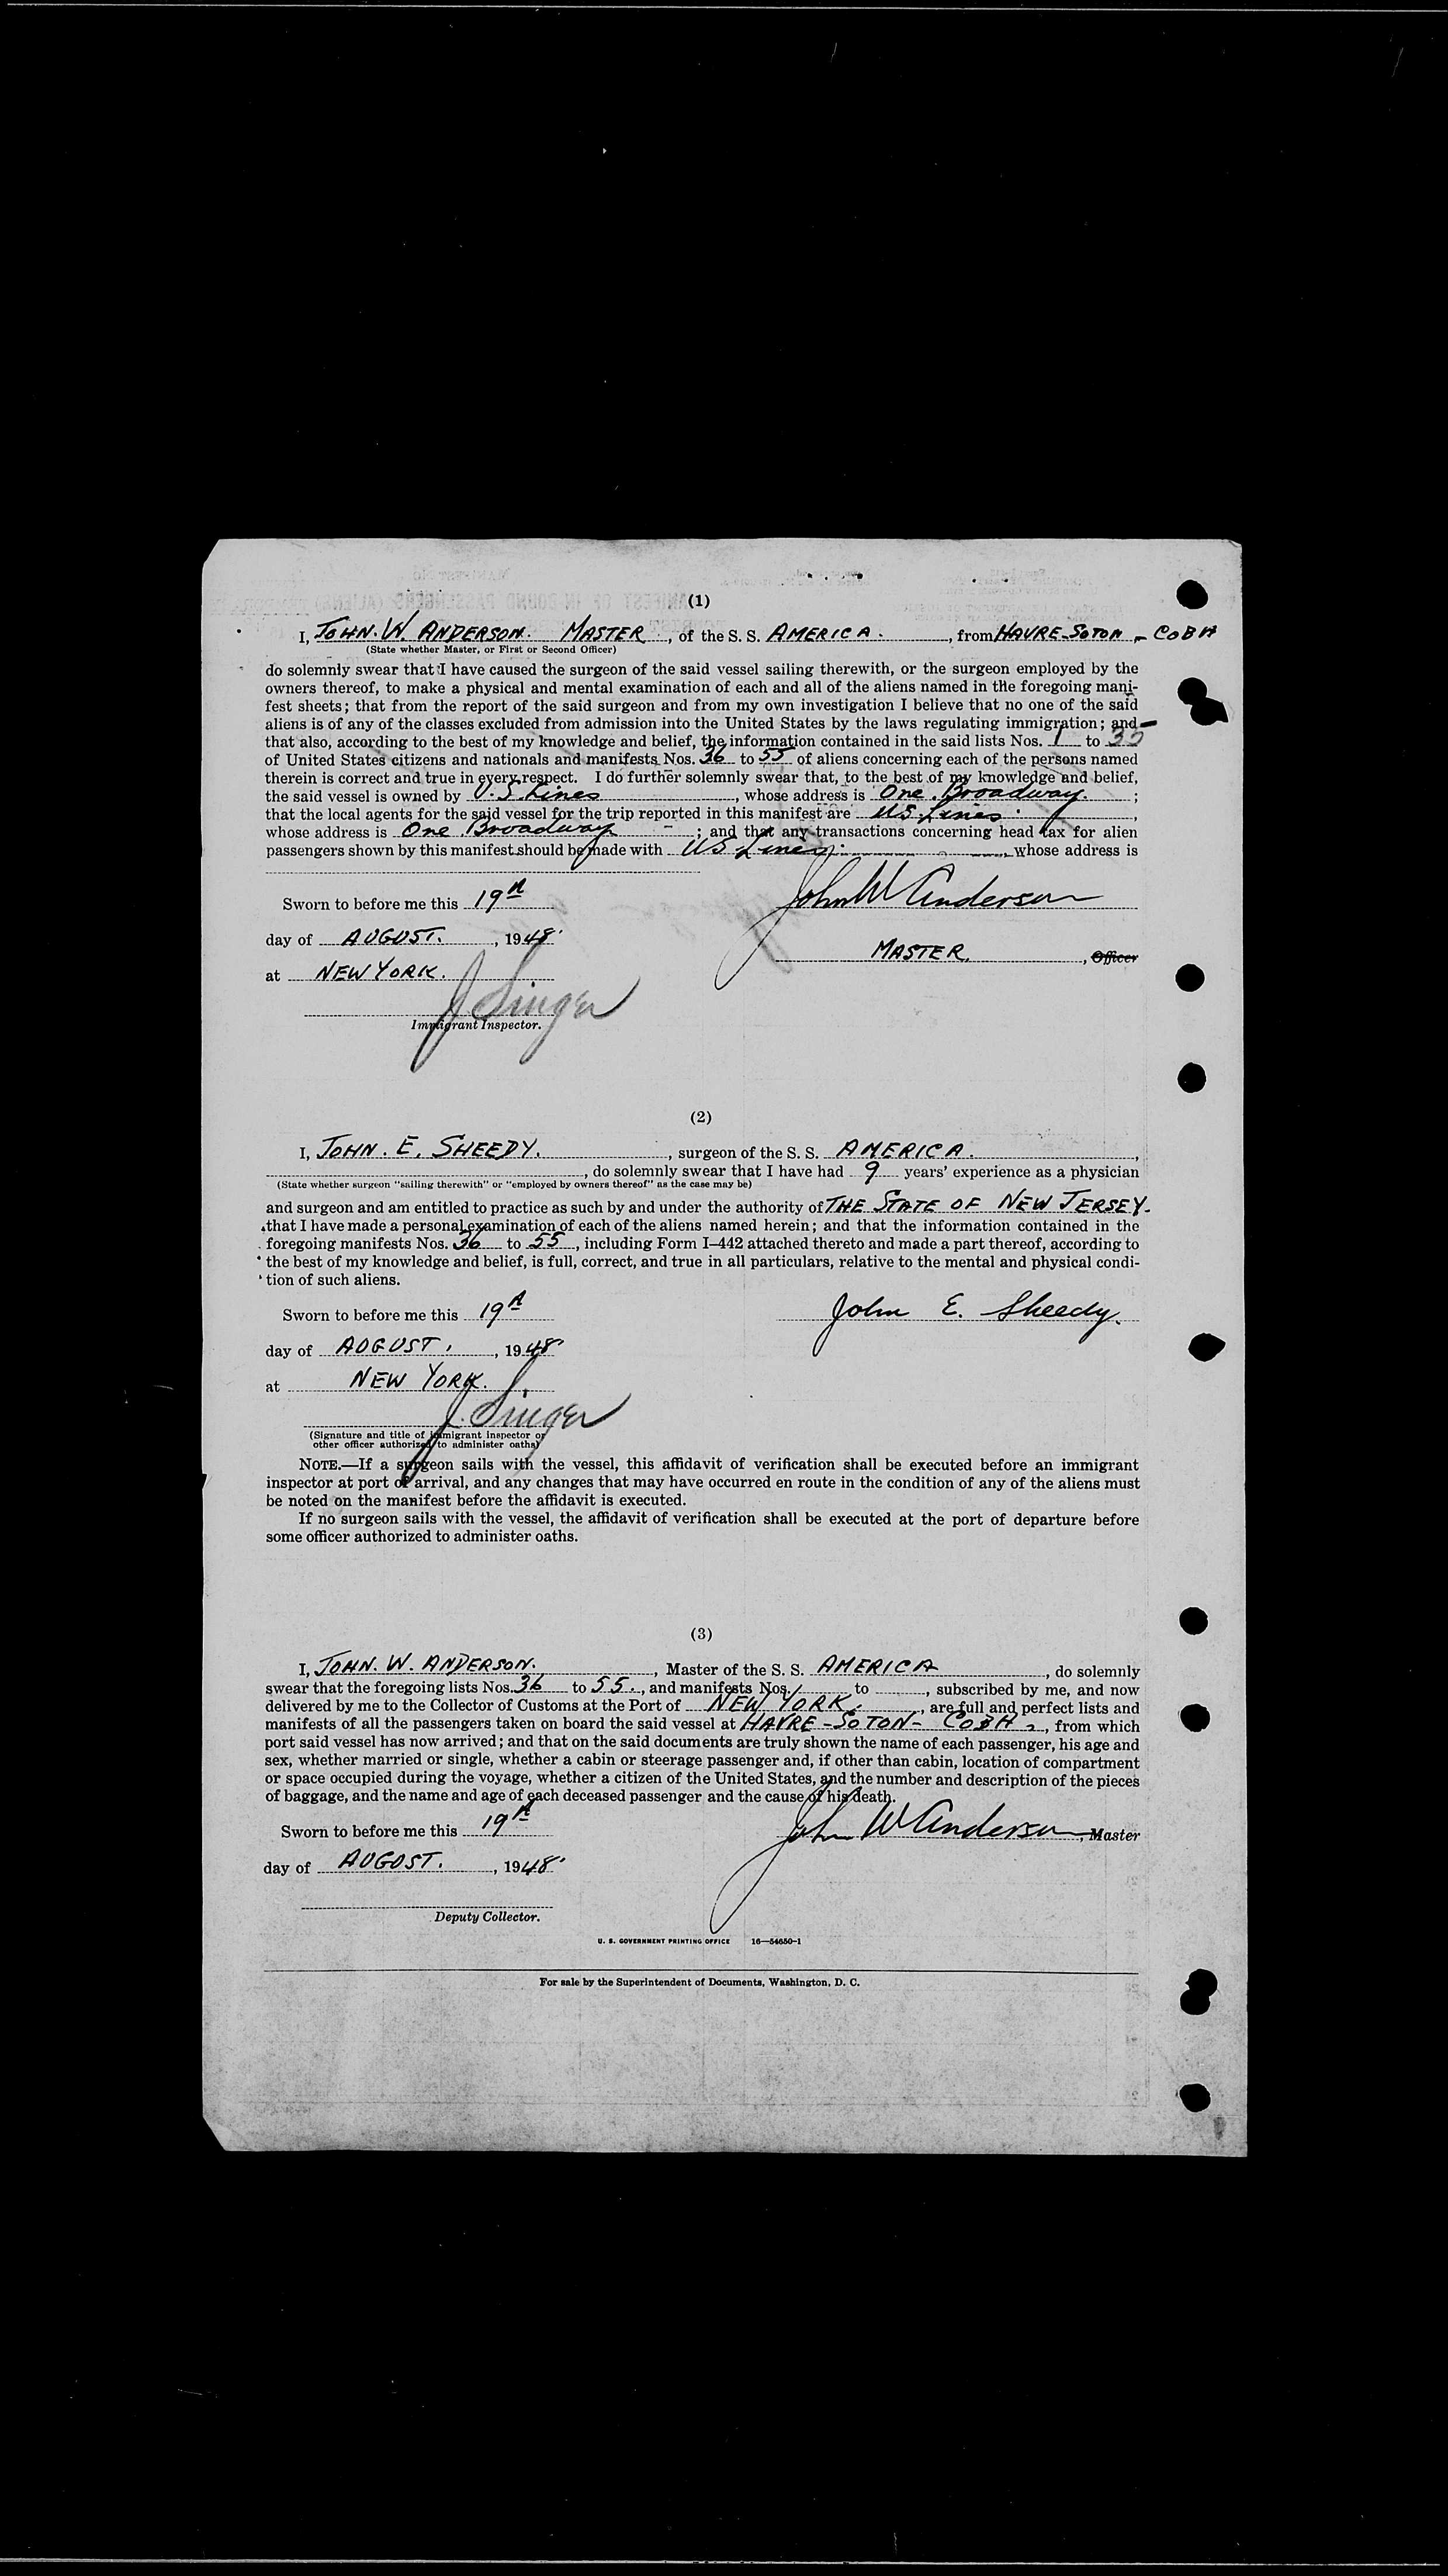 (1)
I, JOHN. W. ANDERSON. MASTER, of the S. S. AMERICA., from HAVRE-SOTON - COBH
(State whether Master, or First or Second Officer)
do solemnly swear that I have caused the surgeon of the said vessel sailing therewith, or the surgeon employed by the
owners thereof, to make a physical and mental examination of each and all of the aliens named in the foregoing mani-
fest sheets; that from the report of the said surgeon and from my own investigation I believe that no one of the said
aliens is of any of the classes excluded from admission into the United States by the laws regulating immigration; and
that also, according to the best of my knowledge and belief, the information contained in the said lists Nos. 1 to 35
of United States citizens and nationals and manifests Nos. 36 to 55 of aliens concerning each of the persons named
therein is correct and true in every respect. I do further solemnly swear that, to the best of my knowledge and belief,
the said vessel is owned by U.S. Lines, whose address is One Broadway. ;
that the local agents for the said vessel for the trip reported in this manifest are US Lines.,
whose address is One Broadway - ; and that any transactions concerning head tax for alien
passengers shown by this manifest should be made with US Lines. , whose address is
Sworn to before me this 19th
John W Anderson
day of AUGUST., 1948.
MASTER., Officer
at NEW YORK.
J Singer
Immigrant Inspector.
(2)
I, JOHN. E. SHEEDY., surgeon of the S. S. AMERICA.,
, do solemnly swear that I have had 9 years' experience as a physician
(State whether surgeon "sailing therewith" or "employed by owners thereof" as the case may be)
and surgeon and am entitled to practice as such by and under the authority of THE STATE OF NEW JERSEY.
that I have made a personal examination of each of the aliens named herein; and that the information contained in the
foregoing manifests Nos. 36 to 55, including Form I-442 attached thereto and made a part thereof, according to
the best of my knowledge and belief, is full, correct, and true in all particulars, relative to the mental and physical condi-
tion of such aliens.
Sworn to before me this 19th
John E. Sheedy.
day of AUGUST., 1948.
at NEW YORK.
J. Singer
(Signature and title of immigrant inspector or
other officer authorized to administer oaths)
NOTE.—If a surgeon sails with the vessel, this affidavit of verification shall be executed before an immigrant
inspector at port of arrival, and any changes that may have occurred en route in the condition of any of the aliens must
be noted on the manifest before the affidavit is executed.
If no surgeon sails with the vessel, the affidavit of verification shall be executed at the port of departure before
some officer authorized to administer oaths.
(3)
I, JOHN. W. ANDERSON., Master of the S. S. AMERICA, do solemnly
swear that the foregoing lists Nos. 36 to 55., and manifests Nos. to , subscribed by me, and now
delivered by me to the Collector of Customs at the Port of NEW YORK., are full and perfect lists and
manifests of all the passengers taken on board the said vessel at HAVRE-SOTON- COBH, from which
port said vessel has now arrived; and that on the said documents are truly shown the name of each passenger, his age and
sex, whether married or single, whether a cabin or steerage passenger and, if other than cabin, location of compartment
or space occupied during the voyage, whether a citizen of the United States, and the number and description of the pieces
of baggage, and the name and age of each deceased passenger and the cause of his death.
Sworn to before me this 19th
John W Anderson, Master
day of AUGUST., 1948.
Deputy Collector.
U. S. GOVERNMENT PRINTING OFFICE 16—54650-1
For sale by the Superintendent of Documents, Washington, D. C.